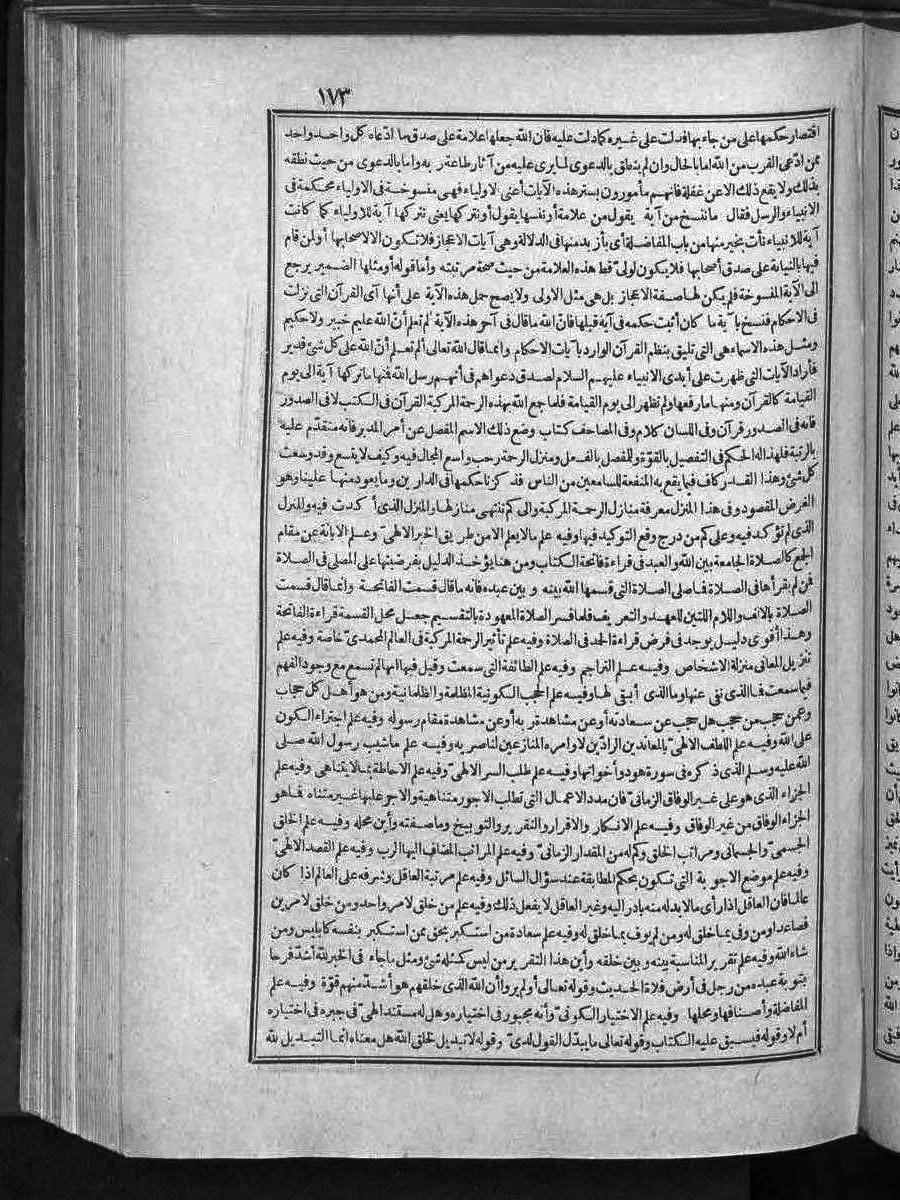 ١٧٣
اقتصار حكمها على من جاء بها فدلت على غيره كما دلت عليه فان الله جعلها علامة على صدق ما ادّعاه كل واحد واحد
ممن ادّعى القرب من الله اما بالحال وان لم ينطق بالدعوى لما يرى عليه من آثار طاعة ربه واما بالدعوى من حيث نطقه
بذلك ولا يقع ذلك الا عن غفلة فانهم مأمورون بستر هذه الآيات أعنى الاولياء فهى منسوخة فى الاولياء محكمة فى
الانبياء والرسل فقال ما ننسخ من آية يقول من علامة أو ننسها يقول أو نتركها يعنى نتركها آية للاولياء كما كانت
آية للانبياء نأت بخير منها من باب المفاضلة أى بأزيد منها فى الدلالة وهى آيات الاعجاز فلا تكون الا لاصحابها أو لمن قام
فيها بالنيابة على صدق أصحابها فلا يكون لولى قط هذه العلامة من حيث صحة مرتبته وأما قوله أو مثلها الضمير يرجع
الى الآية المنسوخة فلم يكن لها صفة الاعجاز بل هى مثل الاولى ولا يصح حمل هذه الآية على أنها آى القرآن التى نزلت
فى الاحكام فنسخ بآية ما كان أثبت حكمه فى آية قبلها فان الله ما قال فى آخر هذه الآية ألم تعلم أن الله عليم خبير ولا حكيم
ومثل هذه الاسماء هى التى تليق بنظم القرآن الوارد بآيات الاحكام وانما قال الله تعالى ألم تعلم أن الله على كل شئ قدير
فأراد الآيات التى ظهرت على أيدى الانبياء عليهم السلام لصدق دعواهم فى أنهم رسل الله فنها ما تركها آية الى يوم
القيامة كالقرآن ومنها ما رفعها ولم تظهر الى يوم القيامة فلما جمع الله بهذه الرحمة المركبة القرآن فى الكتب لا فى الصدور
فانه فى الصدور قرآن وفى اللسان كلام وفى المصاحف كتاب وضع ذلك الاسم المفصل عن أمر المدبر فانه متقدّم عليه
بالرتبة فلهذا له الحكم فى التفصيل بالقوّة وللمفصل بالفعل ومنزل الرحمة رحب واسع المجال فيه وكيف لا يتسع وقد وسعت
كل شئ وهذا القدر كاف فيما يقع به المنفعة للسامعين من الناس قد ذكرنا حكمها فى الدارين وما يعود منها علينا وهو
الغرض المقصود وفى هذا المنزل معرفة منازل الرحمة المركبة والى كم تنتهى منازلها والمنزل الذى أكدت فيه والمنزل
الذى لم تؤكد فيه وعلى كم من درج وقع التوكيد فيها وفيه علم ما لا يعلم الا من طريق الخبر الالهىّ وعلم الابانة عن مقام
الجمع كالصلاة الجامعة بين الله والعبد فى قراءة فاتحة الكتاب ومن هنا يؤخذ الدليل بفرضيتها على المصلى فى الصلاة
فمن لم يقرأها فى الصلاة فما صلى الصلاة التى قسمها الله بينه وبين عبده فانه ما قال قسمت الفاتحة وانما قال قسمت
الصلاة بالالف واللام اللتين للعهد والتعريف فلما فسر الصلاة المعهودة بالتقسيم جعل محل القسمة قراءة الفاتحة
وهذا أقوى دليل يوجد فى فرض قراءة الحمد فى الصلاة وفيه علم تأثير الرحمة المركبة فى العالم المحمدىّ خاصة وفيه علم
تنزيل المعانى منزلة الاشخاص وفيه علم التراجم وفيه علم الطائفة التى سمعت وقيل فيها انها لم تسمع مع وجود الفهم
فيما سمعت فما الذى نفى عنها وما الذى أبقى لها وفيه علم الحجب الكونية المظلمة والظلمانية ومن هو أهل كل حجاب
وعمن حجب من حجب هل حجب عن سعادته أو عن مشاهدة ربه أو عن مشاهدة مقام رسوله وفيه علم اجتراء الكون
على الله وفيه علم اللطف الالهىّ بالمعاندين الرادّين لاوامره المنازعين لناصر به وفيه علم ما شيب رسول الله صلى
الله عليه وسلم الذى ذكره فى سورة هود وأخواتها وفيه علم طلب السر الالهىّ وفيه علم الاحاطة بما لا يتناهى وفيه علم
الجزاء الذى هو على غير الوفاق الزمانىّ فان مدد الاعمال التى تطلب الاجور متناهية والاجر عليها غير متناه فما هو
الجزاء الوفاق من غير الوفاق وفيه علم الانكار والاقرار والتقرير والتوبيخ وما صفته وأين محله وفيه علم الخلق
الجسمىّ والجسمانى ومراتب الخلق وكم له من المقدار الزمانىّ وفيه علم المراتب المضاف اليها الرب وفيه علم القصد الالهىّ
وفيه علم موضع الاجوبة التى تكون بحكم المطابقة عند سؤال السائل وفيه علم مرتبة العاقل وشرفه على العالم اذا كان
عالما فان العاقل اذا رأى ما لا بد له منه بادر اليه وغير العاقل لا يفعل ذلك وفيه علم من خلق لامر واحد ومن خلق لامرين
فصاعدا ومن وفى بما خلق له ومن لم يوف بما خلق له وفيه علم سعادة من استكبر بحق ممن استكبر بنفسه كابليس ومن
شاء الله وفيه علم تقرير المناسبة بينه وبين خلقه وأين هذا التقرير من ليس كمثله شئ ومثل ما جاء فى الخبر لله أشدّ فرحا
بتوبة عبده من رجل فى أرض فلاة الحديث وقوله تعالى أولم يروا أن الله الذى خلقهم هو أشدّ منهم قوّة وفيه علم
المفاضلة وأصنافها ومحلها وفيه علم الاختيار الكونىّ وأنه مجبور فى اختياره وهل له مستند الهىّ فى جبره فى اختياره
أم لا وقوله فيسبق عليه الكتاب وقوله تعالى ما يبدّل القول لدىّ وقوله لا تبديل لخلق الله هل معناه انما التبديل لله